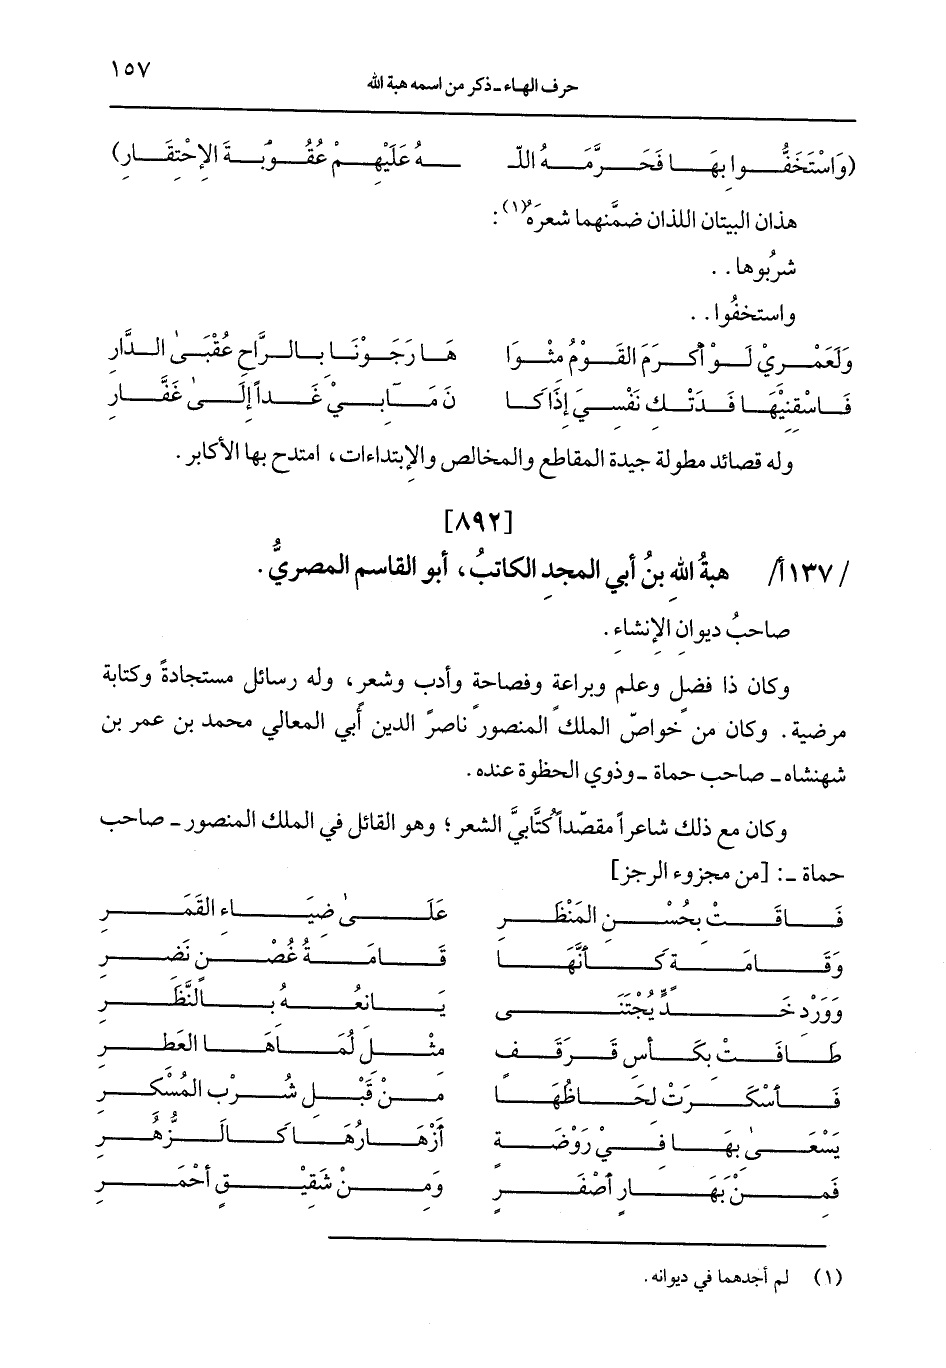 حرف الهاء ـ ذكر من اسمه هبة الله ١٥٧
(وَاسْتَخَفُّوا بِهَا فَحَرَّمَهُ اللّـ ـهُ عَلَيْهِمْ عُقُوبَةَ الإِحْتِقَارِ)
هذان البيتان اللذان ضمَّنهما شعرَهُ(١):
شربُوها . .
واستخفُوا . .
وَلَعَمْرِيْ لَوْ أَكْرَمَ القَوْمُ مثْوَا هَا رَجَوْنَا بِالرَّاحِ عُقْبَىٰ الدَّارِ
فَاسْقِنِيْهَا فَدَتْكَ نَفْسِيَ إِذَا كَا نَ مَآبِيْ غَداً إِلَىٰ غَفَّارِ
وله قصائد مطولة جيدة المقاطع والمخالص والإبتداءات، امتدح بها الأكابر .
[٨٩٢]
/١٣٧أ/ هبةُ اللهِ بنُ أبي المجدِ الكاتبُ، أبو القاسم المصريُّ .
صاحبُ ديوانِ الإنشاءِ .
وكان ذا فضلٍ وعلم وبراعةٍ وفصاحةٍ وأدبٍ وشعرٍ، وله رسائل مستجادةً وكتابة
مرضية . وكان من خواصّ الملك المنصور ناصرَ الدين أبي المعالي محمد بن عمر بن
شهنشاه ـ صاحب حماة ـ وذوي الحظوة عنده .
وكان مع ذلك شاعراً مقصّداً كُتَّابيَّ الشعر؛ وهو القائل في الملك المنصور ـ صاحب
حماة ـ: [من مجزوء الرجز]
فَاقَتْ بِحُسْنِ المَنْظَرِ عَلَىٰ ضِيَاءِ القَمَرِ
وَقَامَةٍ كَأَنَّهَا قَامَةُ غُصْنٍ نَضِرِ
وَوَرْدِ خَدٍّ يُجْتَنَى يَانِعُهُ بِالنَّظَرِ
طَافَتْ بِكَأْسِ قَرْقَفٍ مِثْلِ لُمَاهَا العَطِرِ
فَأَسْكَرَتْ لِحَاظُهَا مِنْ قَبْلِ شُرْبِ المُسْكِرِ
يَسْعَىٰ بِهَا فِيْ رَوْضَةٍ أَزْهَارُهَا كَالزُّهُرِ
فَمِنْ بَهَارٍ أَصْفَرٍ وَمِنْ شَقِيْقٍ أَحْمَرِ
(١) لم أجدهما في ديوانه .